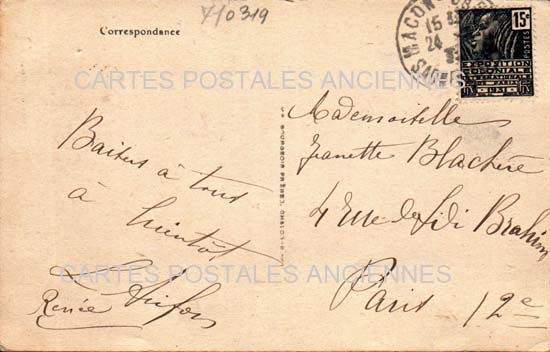 710319
Correspondance
MACON
15
24
15c
POSTES
EXPOSITION
COLONIALE
INTERNATIONALE
PARIS
1931
CARTES POSTALES ANCIENNES
Baisers à tous
à bientôt
Renée
BOURGEOIS FRÈRES, CHALON-S-
Mademoiselle
Jeanette Blachère
4 Rue de Sidi Brahim
Paris 12e
CARTES POSTALES ANCIENNES